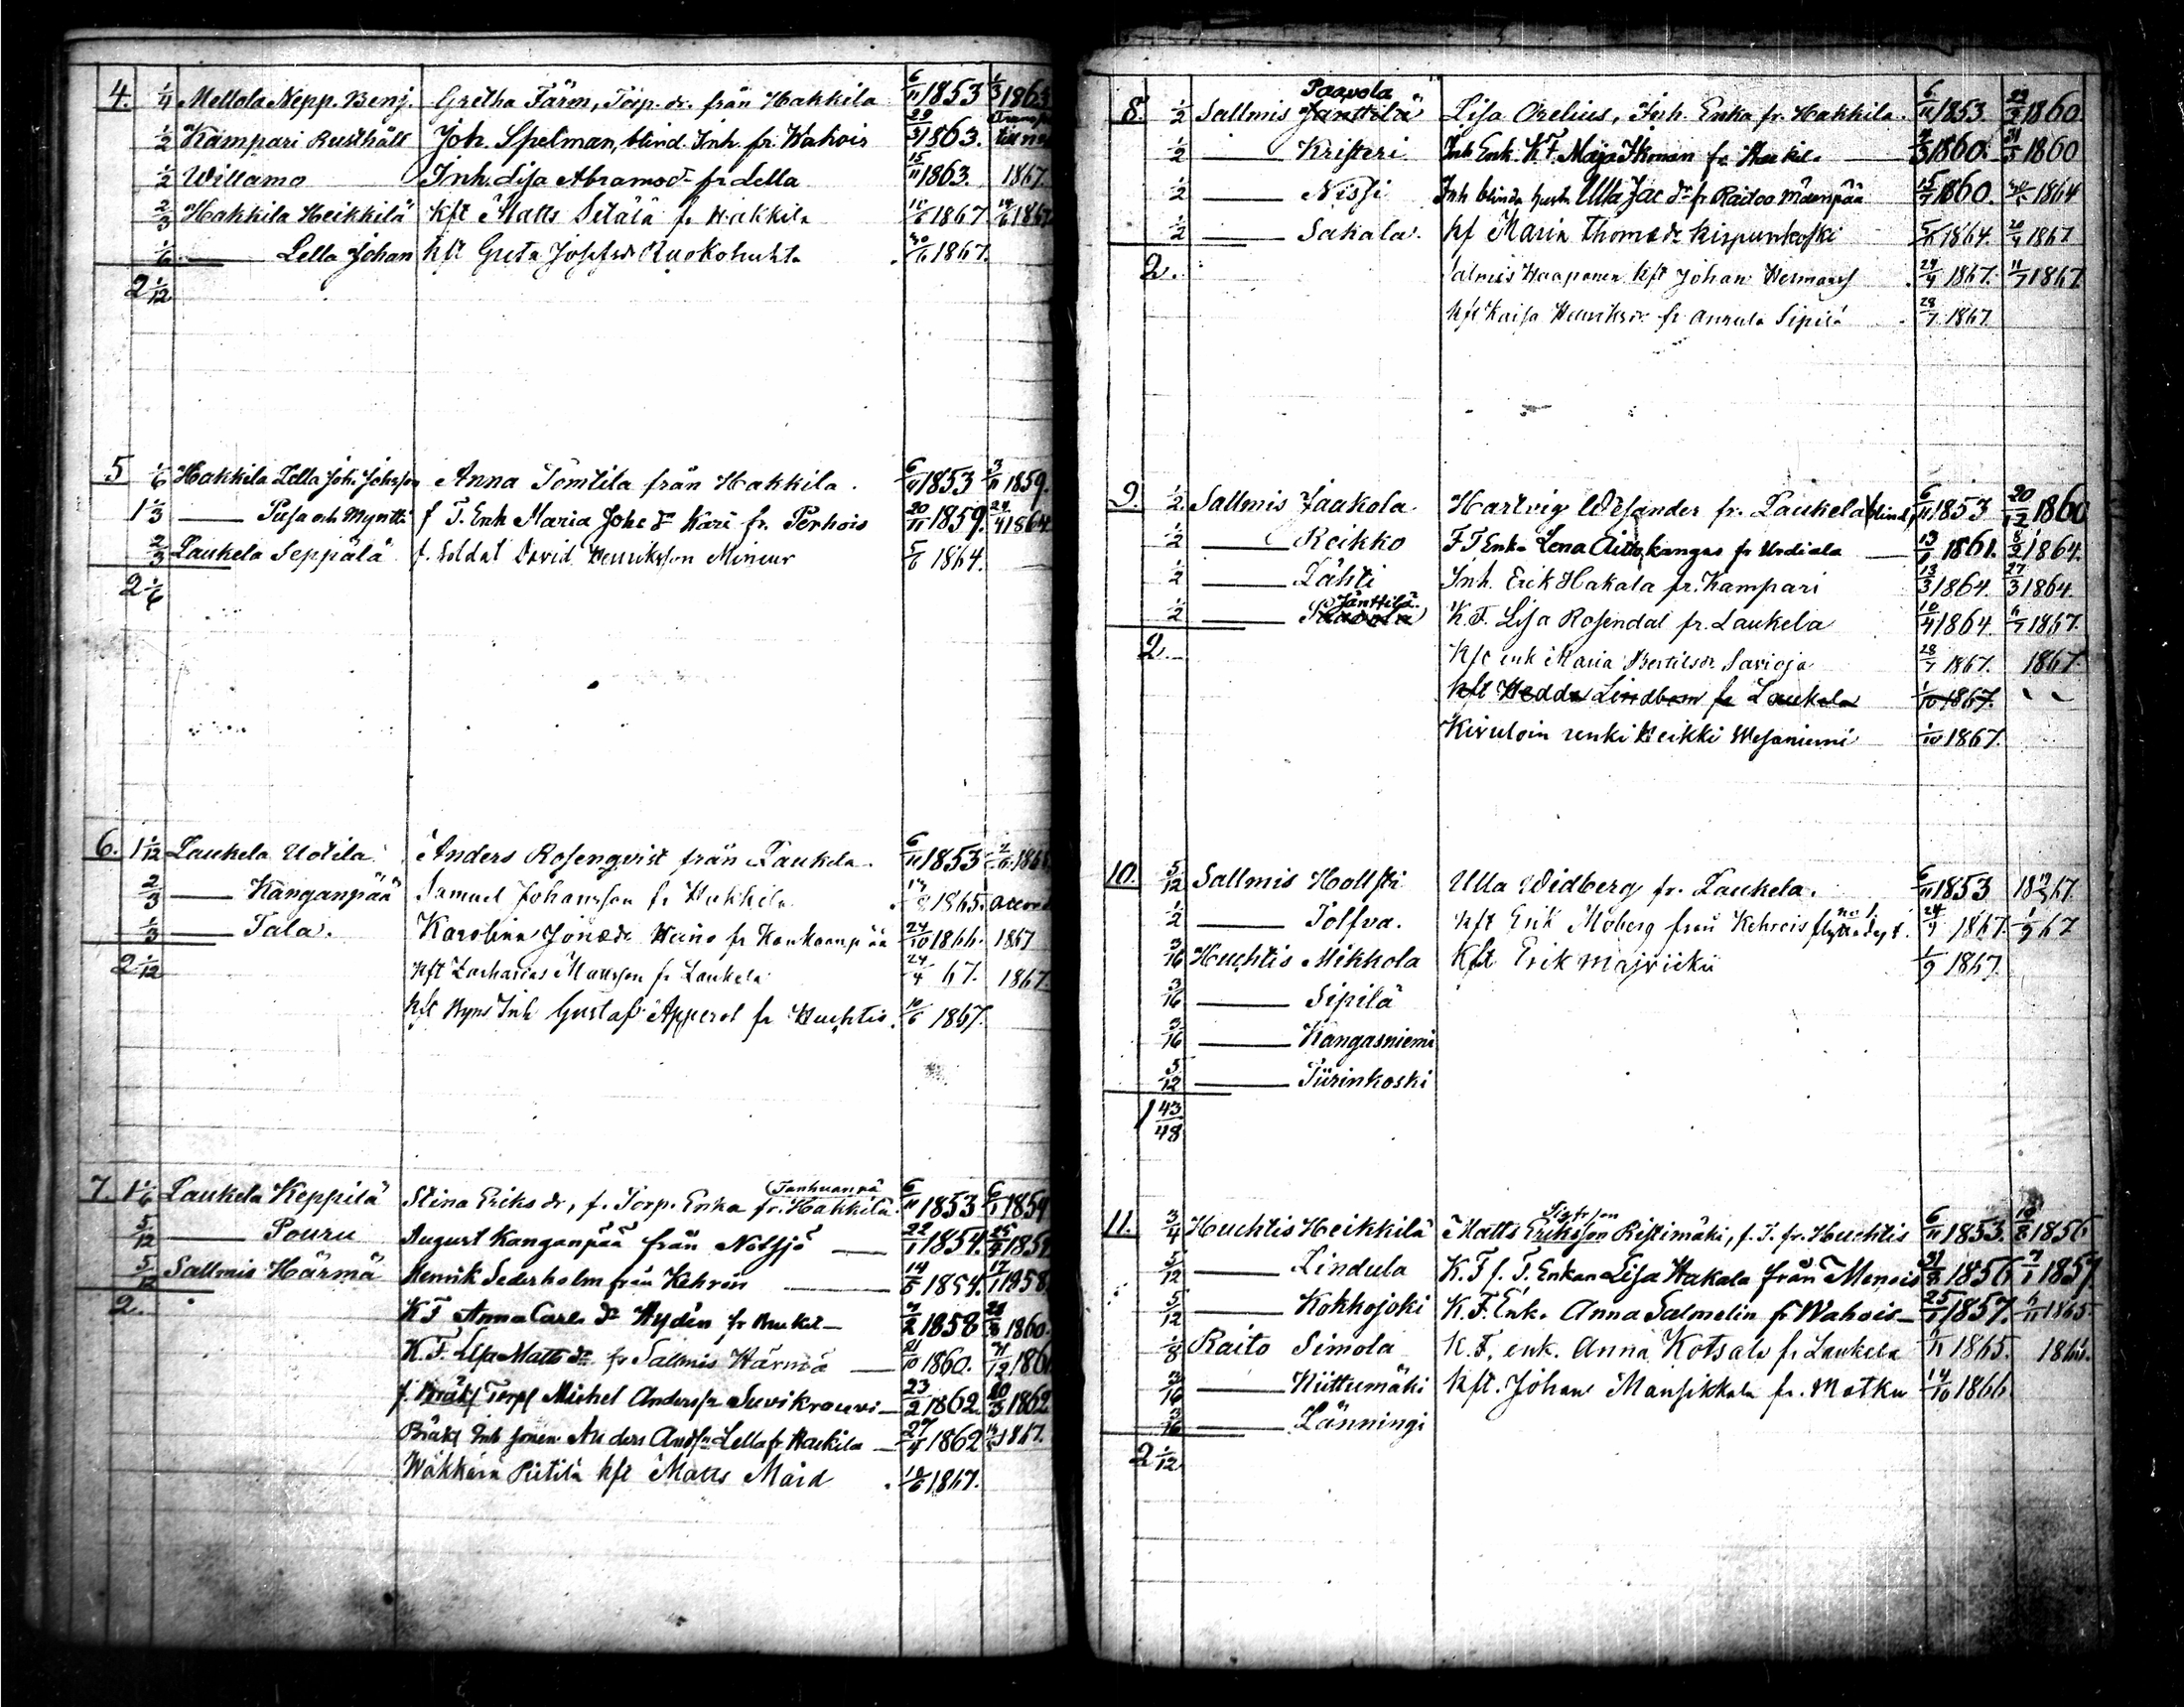 4. 1/4 Mellola Nepp. Benj. Gretha Färm, Torp. dr. från Hakkila 6/11 1853 1/3 1863
1/2 Kämpari Rusthåll Joh. Spelman, blind. Inh. fr. Wahois 29/3 1863.
1/2 Willamo Inh. Lisa Abramsdr fr Lella 15/11 1863. 1867.
2/3 Hakkila Heikkilä kft Matts Setälä fr Hakkila 1867
1/6 —— Lella Johan kft Greta Josefsdr Ruokohuhta 30/6 1867.
2 1/12
5 1/6 Hakkila Lella Joh. Johsson Anna Tomtila från Hakkila. 6/11 1853 3/11 1859.
1 1/3 —— Pusa och Myntti f T. Enk Maria Johs dr Kari fr. Perhois 20/11 1859. 24/4 1864
2/3 Laukela Seppälä f. Soldat David Henriksson Mineur 5/6 1864.
2 1/6
6. 1 1/12 Laukela Uotila. Anders Rosenqvist från Laukela. 6/11 1853
2/3 —— Kanganpää Samuel Johansson fr Hakkila. 1865.
1/3 —— Tala. Karolina Jonædr Heino fr Kankaanpää 24/10 1866. 1867
2 1/12 kft Zacharias Mattsson fr Laukela 24/4 67. 1867.
kft Inh Gustaf Apperot fr Huchtis. 10/6 1867.
7. 1 1/6 Laukela Keppilä Stina Eriks dr, f. Torp. Enka fr. Hakkila. 6/11 1853 6/1 1854
5/12 —— Pouru August Kanganpää från Notsjö —— 22/1 1854.
5/12 Sallmis Härmä Henrik Sederholm från Kehrois —— 14/5 1854. 17/1 1858
2. K F Anna Carls dr Hydén fr 7/2 1858 1860.
K. F. Lisa Matts dr. fr Sallmis Härmä —— 21/10 1860.
f. Bräkl Torp Michel Andersson Suvikrouvi — 23/2 1862 20/3 1862
Bräkl Inh Anders Andsn Lella fr Hackila — 27/4 1862 1867.
Wäkkärä Pietilä kft Matts Maid 10/6 1867.
Paavola
8. 1/2 Sallmis Jänttilä Lisa Orelius, Inh. Enka fr. Hakkila. 6/11 1853 1860
1/2 —— Kristeri Inh Enk. K. F. Maja Ikonen fr Hackila —— 1860. 1860
1/2 —— Nissi Inh blinda Ulla Jac dr fr Raitoo Mäenpää 15/7 1860. 1864
1/2 —— Sakala. kf Maria Thomædr Kirpunkoski 5/6 1864. 20/4 1867
2. Salmis Haaponen kft Johan Hermansf 29/4 1867. 11/7 1867
kft Kaisa Henriksdr fr Anrula Sipilä 28/7 1867
9. 1/2 Sallmis Jaakola. Hartvig Wesander fr. Laukela blind. 6/11 1853 20/12 1860
1/2 —— Reikko F T Enka Lena Aittokangas fr Urdiala —— 13/1 1861. 8/2 1864.
1/2 —— Lähti Inh. Erik Hakala fr. Kämpari 13/3 1864. 27/3 1864.
Jänttilä.
1/2 —— Paavola K. F. Lisa Rosendal fr. Laukela 10/4 1864. 1867.
2. kft enk Maria Bertilsdr Savioja 28/7 1867. 1867.
kft Hedda Lindbom fr Laukela 1/10 1867.
Kivuloin renki Heikki Wesaniemi 1/10 1867.
10. 5/12 Sallmis Hollsti Ulla Widberg fr. Laukela. 6/11 1853
1/2 —— Tolfva. kft Erik Moberg från Kehrois 24/4 1867. 1/9 67
3/16 Huchtis Mikkola Kft Erik 1/9 1867
3/16 —— Sipilä
3/16 —— Kangasniemi
5/12 —— Tiirinkoski
1 43/48
Sigfrson
11. 3/4 Huchtis Heikkilä Matts Eriksson Ristimäki, f. T. fr. Huchtis 6/11 1853. 10/8 1856
5/12 —— Lindula K. F f. T. Enkan Lisa Hakala från Menois 31/8 1856 7/1 1857
5/12 —— Kokkojoki K. F. Enk. Anna Salmelin fr Wahois — 25/1 1857. 1865.
1/8 Raito Simola K. F. enk. Anna Kotsalo fr Laukela 1865. 1866.
3/16 —— Kiittumäki kft. Johan Mansikkala fr. Matku 14/10 1866
3/16 —— Länningi
2 1/12